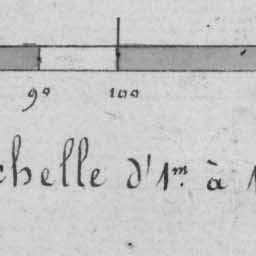 90 100
chelle d'1m. à 1